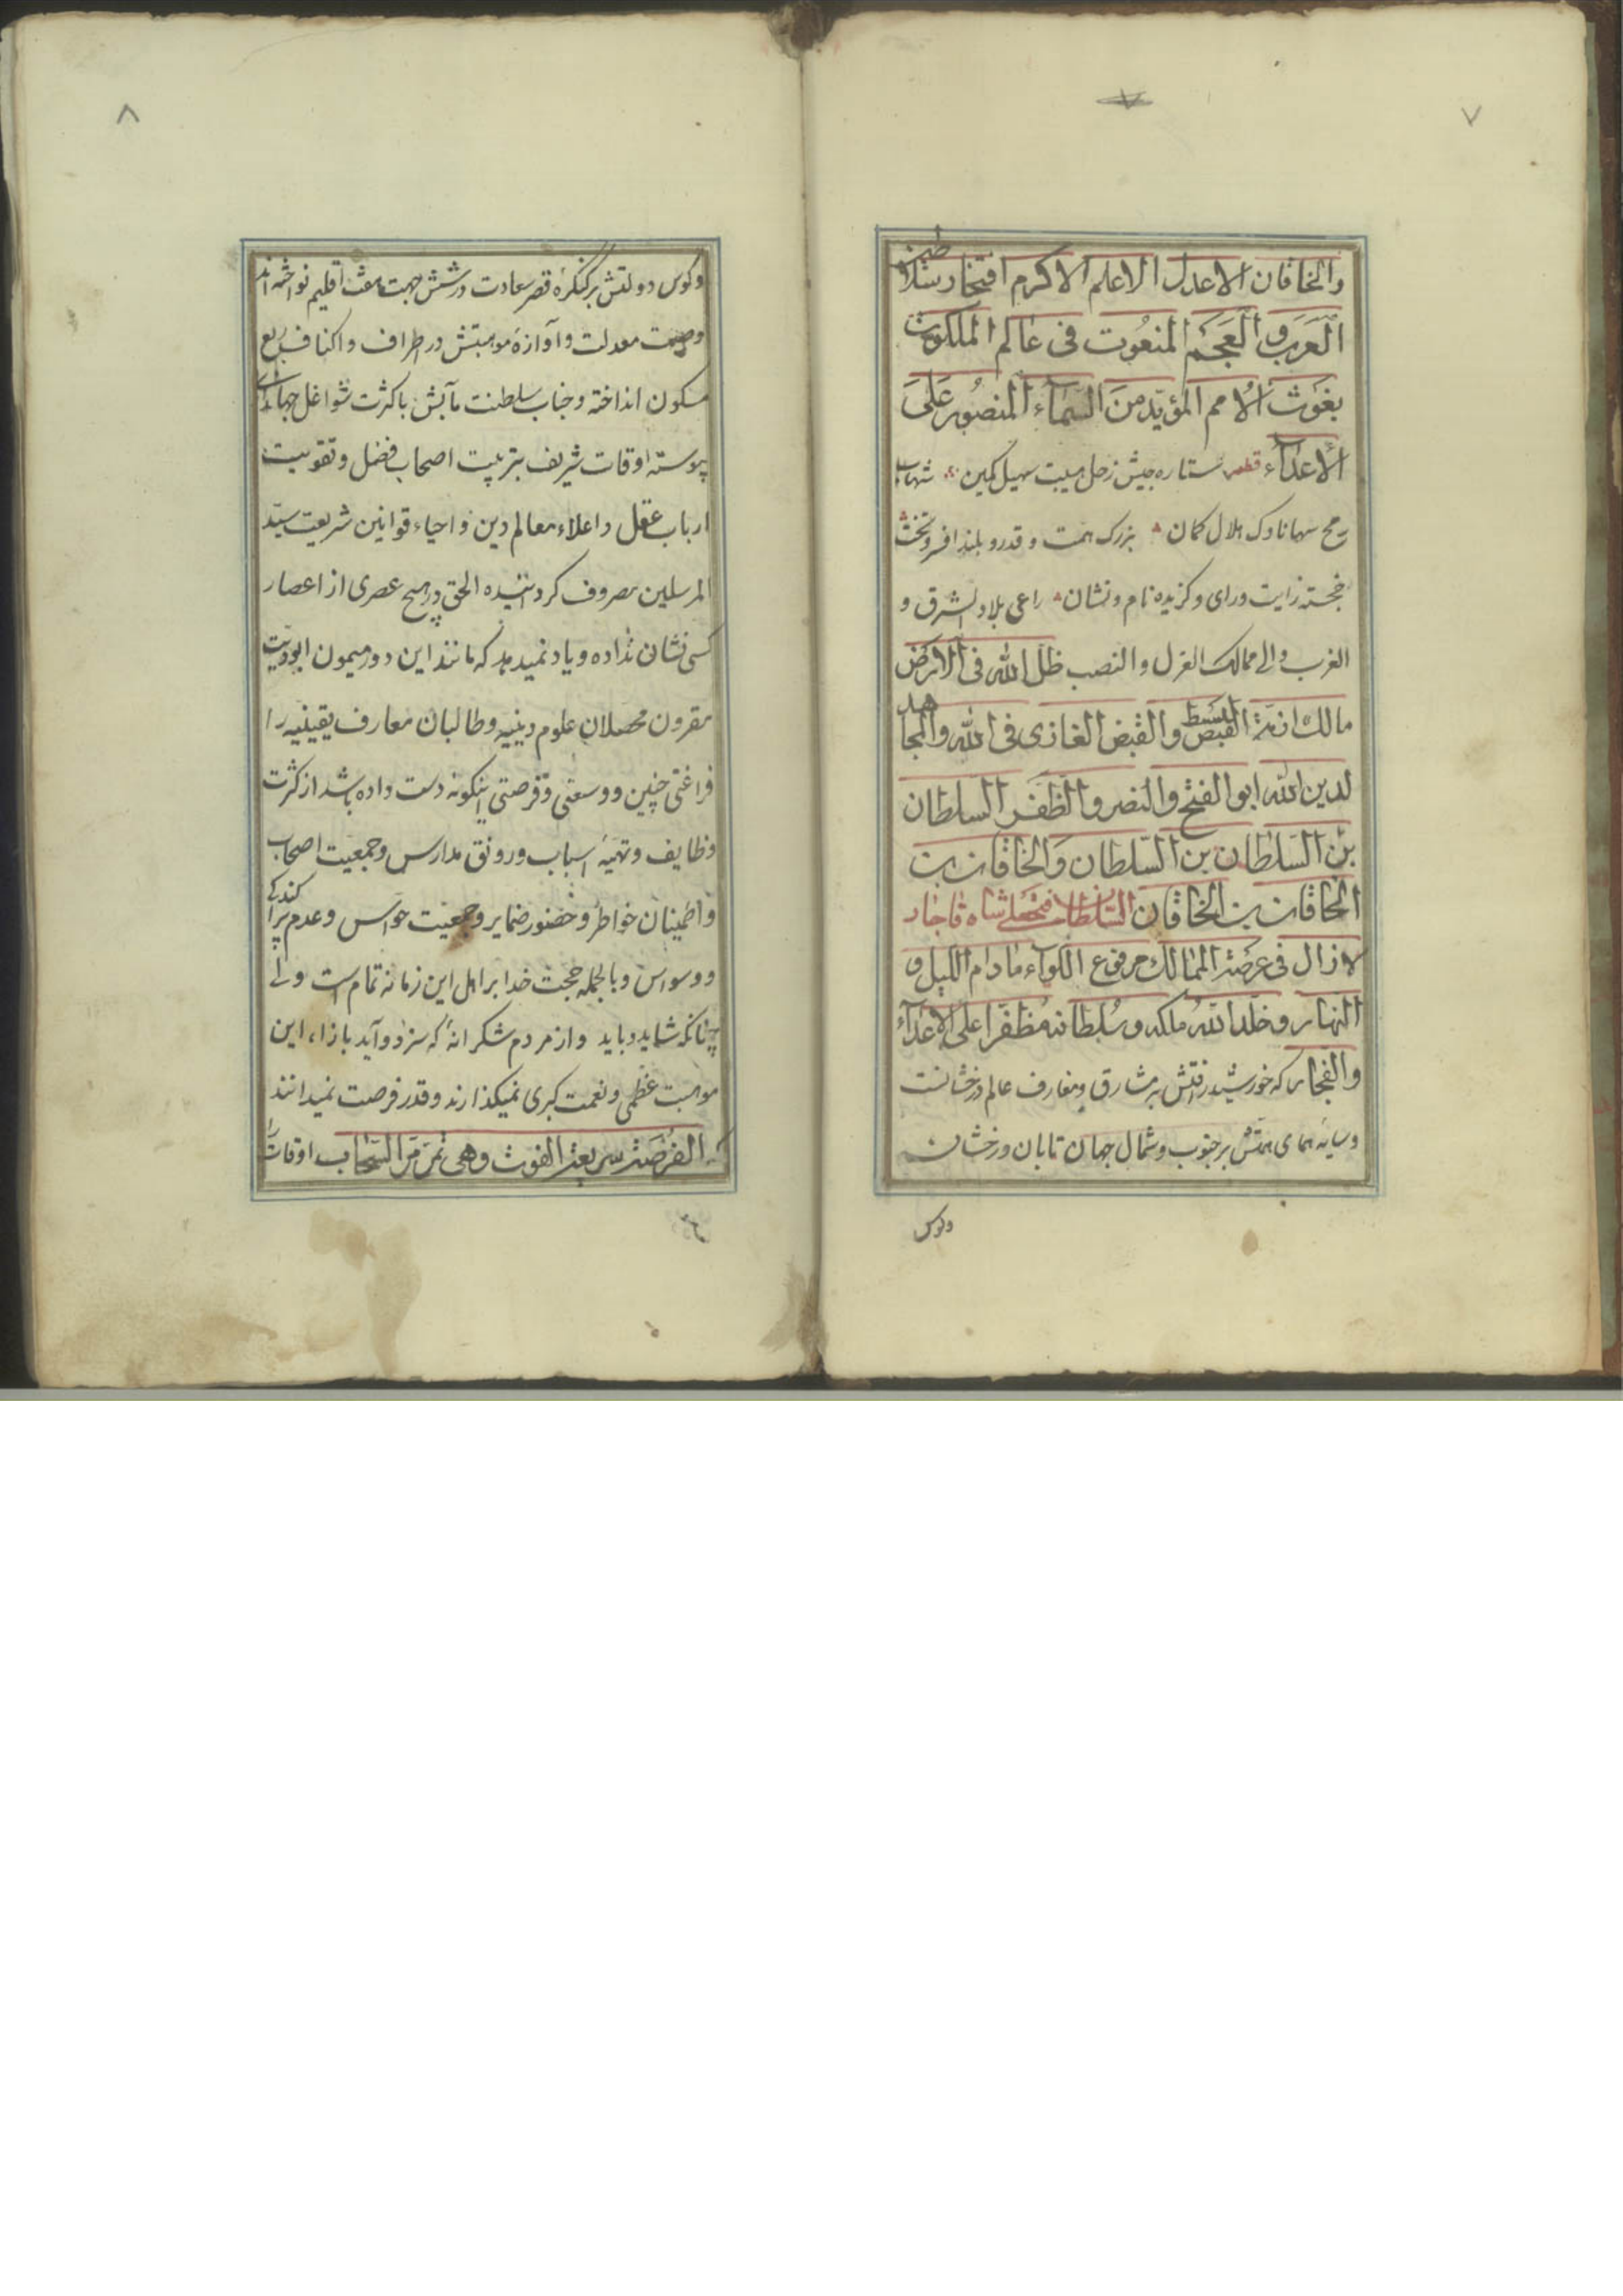 ٧
والخاقان الاعدل الاعلم الاكرم افتخار سلاطين
العرب و العجم المنعوت فى عالم الملكوت
بغوث الامم المؤيد من السماء المنصور على
الاعداء قطعه ستاره جیش زحل هیبت سهیل کمین شهاب
رمح سها ناوک هلال کمان بزرک همت و قدر و بلند افسر و تخت
خجسته رایت و رای و کزیده نام و نشان راعی بلاد الشرق و
الغرب والی ممالک العزل و النصب ظل الله فى الارض
مالك ازمة القبض البسط والقبض الغازى فى الله والمجاهد
لدين الله ابو الفتح والنصر والظفر السلطان
بن السلطان بن السلطان والخاقان بن
الخاقان بن الخاقان السلطان فتحعلی شاه قاجار
لازال فى عرصة الممالك مرفوع اللوآء مادام الليل و
النهار و خلد الله ملكه و سلطانه مظفرا على الاعدآء
والفجار که خورشید رافتش بر مشارق و مغارب عالم درخشانست
و سایهٔ همای همتش بر جنوب و شمال جهان تابان و رخشان
وکوس
٨
وکوس دولتش بر کنکرهٔ قصر سعادت در شش جهت هفت اقلیم نواخته اند
وصیت معدلت و آوازهٔ موهبتش در اطراف و اکناف ربع
مسکون انداخته و جناب سلطنت مآبش با کثرت شواغل جهانداری
پیوسته اوقات شریف بتربیت اصحاب فضل و تقویت
ارباب عقل و اعلاء معالم دین و احیاء قوانین شریعت سید
المرسلین مصروف کردانیده الحق در هیچ عصری از اعصار
کسی نشان نداده و یاد نمیدهد که مانند این دور میمون ابودیت
مقرون محصلان علوم دینیه و طالبان معارف یقینیه را
فراغتی چنین و وسعتی و فرصتی اینکونه دست داده باشد از کثرت
وظایف و تهیهٔ اسباب و رونق مدارس و جمعیت اصحاب
و اطمینان خواطر و حضور ضمایر و جمعیت حواس و عدم پراکندکی
و وسواس و بالجمله حجت خدا بر اهل این زمانه تمام است ولی
چنانکه شاید و باید و از مردم شکرانهٔ که سزد و آید بازاء این
موهبت عظمی و نعمت کبری نمیکذارند و قدر فرصت نمیدانند
که الفرصة سریعة الفوت وهی تمر مر السحاب اوقات را